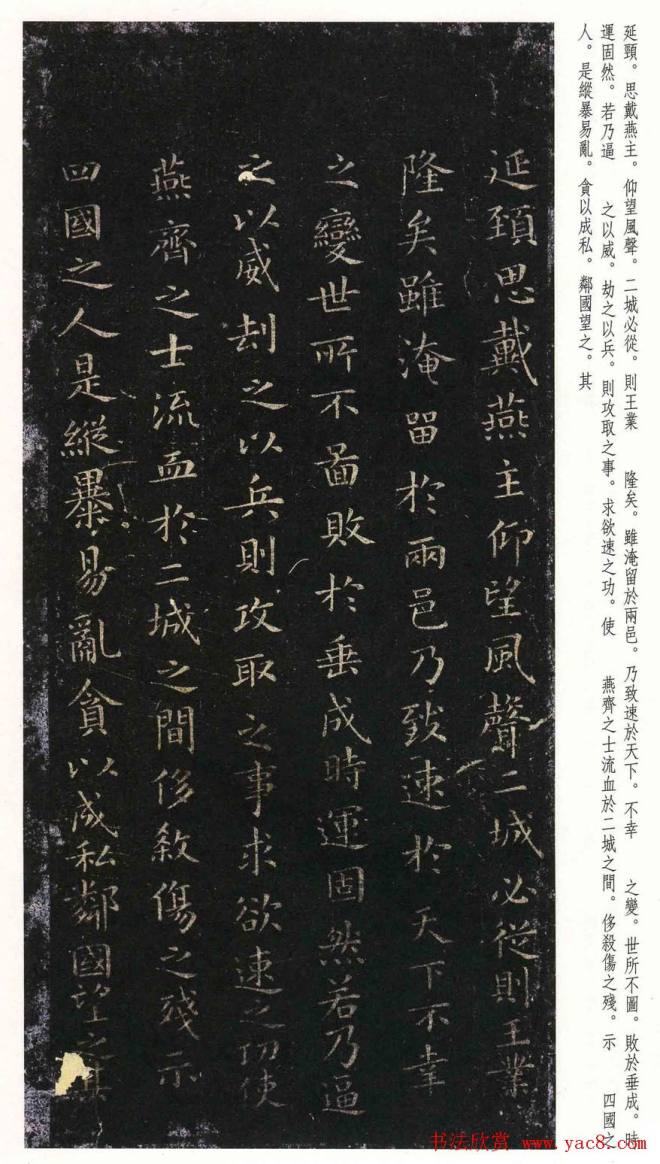 延頸。思戴燕主。仰望風聲。二城必從。則王業 隆矣。雖淹留於兩邑。乃致速於天下。不幸 之變。世所不圖。敗於垂成。時
運固然。若乃逼 之以威。劫之以兵。則攻取之事。求欲速之功。使 燕齊之士流血於二城之間。侈殺傷之殘。示 四國之
人。是縱暴易亂。貪以成私。鄰國望之。其
延頸思戴燕主仰望風聲二城必從則王業
隆矣雖淹留於兩邑乃致速於天下不幸
之變世所不啚敗於垂成時運固然若乃逼
之以威刦之以兵則攻取之事求欲速之功使
燕齊之士流血於二城之間侈殺傷之殘示
四國之人是縱暴易亂貪以成私鄰國望之其
书法欣赏 www.yac8.com